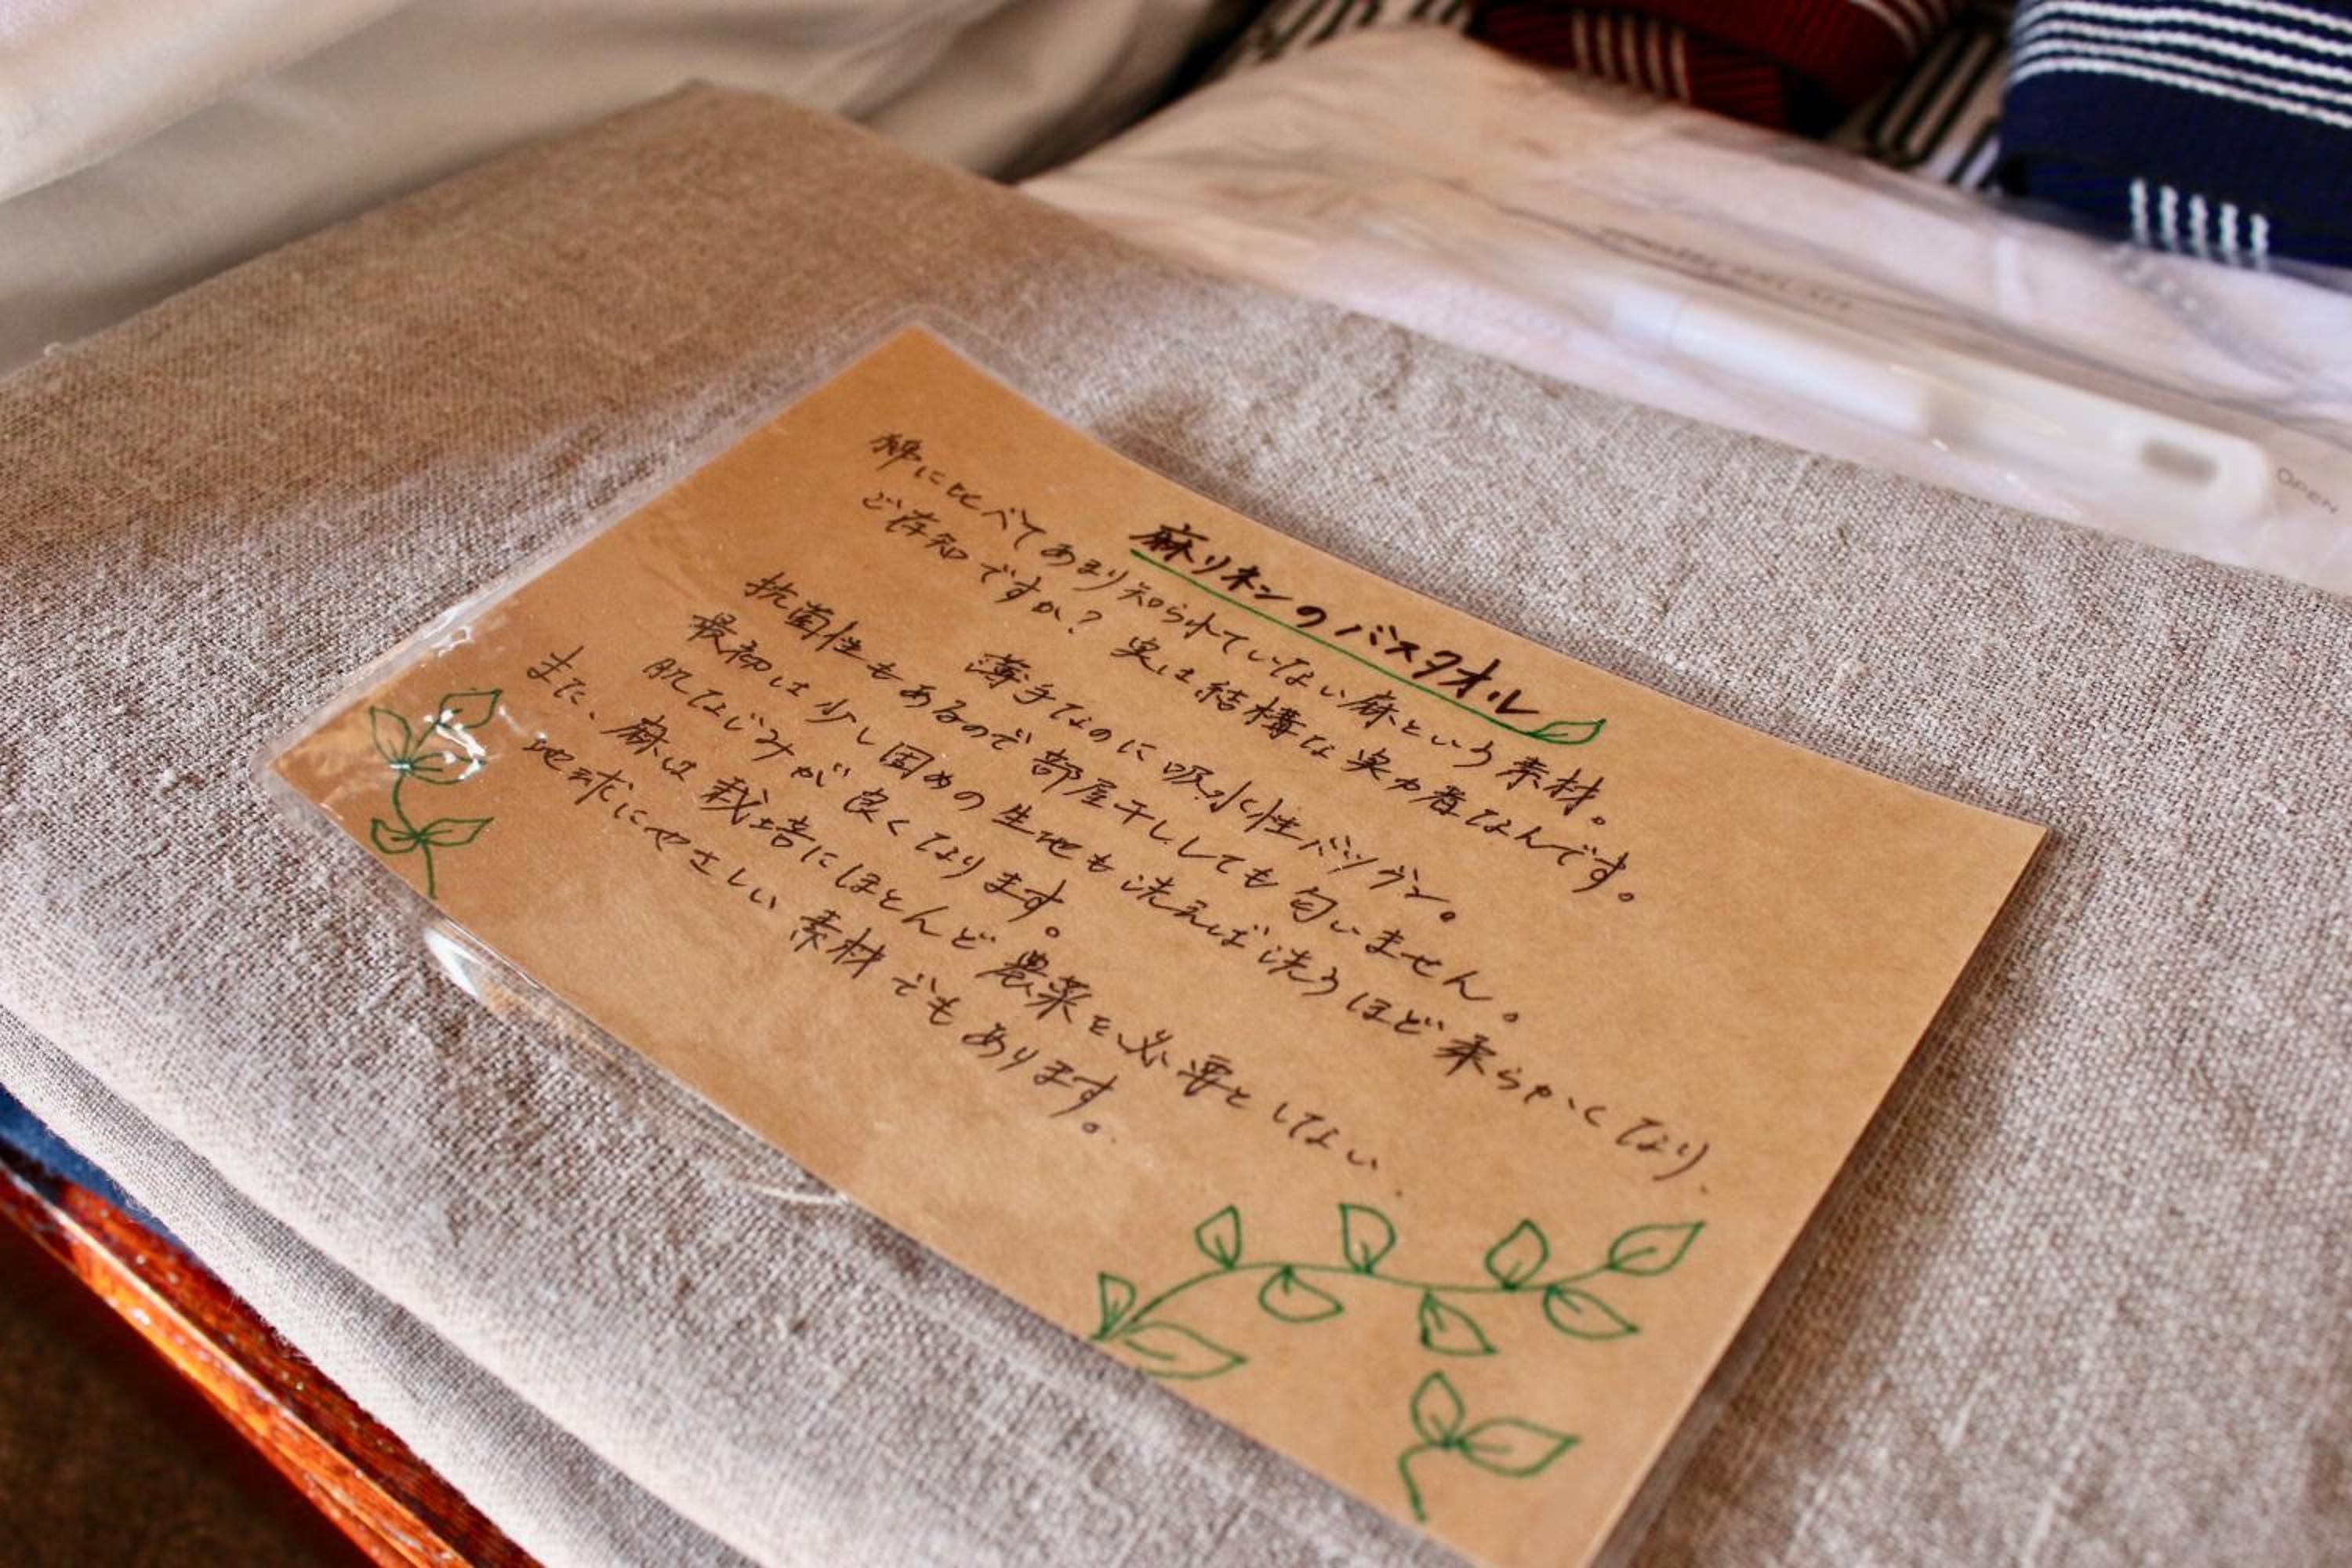 麻リネンのバスタオル
綿に比べてあまり知られていない麻という素材。
ご存知ですか？ 実は結構な実力者なんです。
薄手なのに吸水性バツグン。
抗菌性もあるので部屋干ししても匂いません。
最初は少し固めの生地も洗えば洗うほど柔らかくなり、
肌なじみが良くなります。
また、麻は栽培にほとんど農薬を必要としない、
地球にやさしい素材でもあります。
OPEN